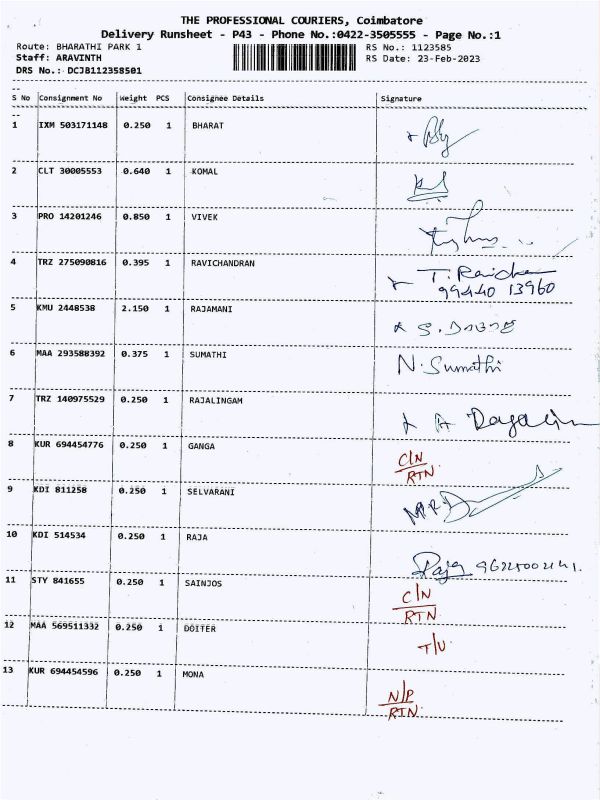 THE PROFESSIONAL COURIERS, Coimbatore
Delivery Runsheet - P43 - Phone No.:0422-3505555 - Page No.:1
Route: BHARATHI PARK 1 RS No.: 1123585
Staff: ARAVINTH RS Date: 23-Feb-2023
DRS No.: DCJB112358501
S No Consignment No Weight PCS Consignee Details Signature
1 IXM 503171148 0.250 1 BHARAT
2 CLT 30005553 0.640 1 KOMAL
3 PRO 14201246 0.850 1 VIVEK
4 TRZ 275090816 0.395 1 RAVICHANDRAN
99440 13960
5 KMU 2448538 2.150 1 RAJAMANI
6 MAA 293588392 0.375 1 SUMATHI N. Sumathi
7 TRZ 140975529 0.250 1 RAJALINGAM
8 KUR 694454776 0.250 1 GANGA C/N
RTN
9 KDI 811258 0.250 1 SELVARANI
10 KDI 514534 0.250 1 RAJA Raja
11 STY 841655 0.250 1 SAINJOS C/N
RTN
12 MAA 569511332 0.250 1 DOITER T/U
13 KUR 694454596 0.250 1 MONA N/P
RTN